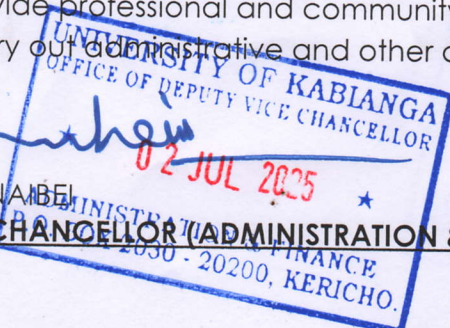 vide professional and community
ry out administrative and other
UNIVERSITY OF KABIANGA
OFFICE OF DEPUTY VICE CHANCELLOR
02 JUL 2025
NAIBEI
CHANCELLOR (ADMINISTRATION &
ADMINISTRATION & FINANCE
P.O. BOX 2030 - 20200, KERICHO.